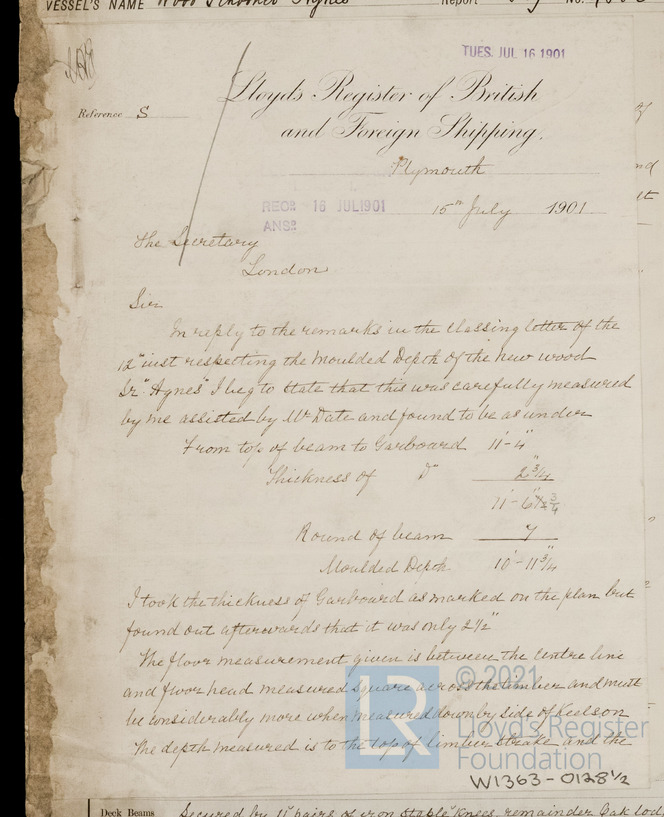 VESSEL'S NAME Wood Schooner Agnes Report No.
TUES. JUL 16 1901
Reference S
Lloyds Register of British
and Foreign Shipping.
Plymouth
REC? 16 JUL 1901
15th July 1901
ANS?
The Secretary
London
Sir
In reply to the remarks in the classing letter of the
12" inst respecting the Moulded Depth of the new wood
Sr "Agnes" I beg to state that this was carefully measured
by me assisted by Mr Date and found to be as under
From top of beam to Garboard 11'-4"
Thickness of Do 2 3/4"
11'-6 3/4
Round of beam 7
Moulded Depth 10'-11 3/4"
I took the thickness of Garboard as marked on the plan but
found out afterwards that it was only 2 1/2"
The floor measurement given is between the centre line
and floor head measured square across the timber and must
be considerably more when measured down by side of Keelson
The depth measured is to the top of limber strake and the
© 2021
Lloyd's Register
Foundation
LR
W1363-0128 1/2
Deck Beams Secured by 11 pairs of iron staple Knees, remainder Oak lod